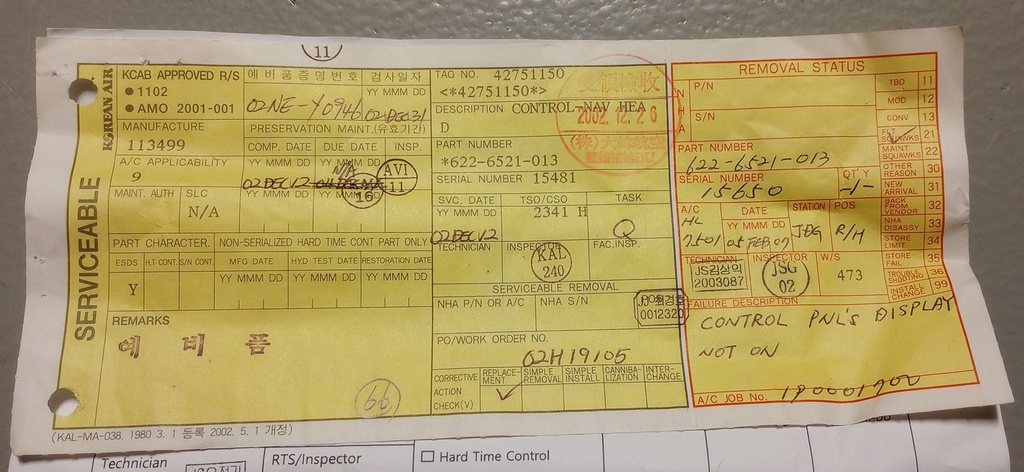 11
KOREAN AIR
SERVICEABLE
KCAB APPROVED R/S
●1102
●AMO 2001-001
예비품증명번호
02NE-Y0946
검사일자
YY MMM DD
02DEC31
MANUFACTURE
113499
PRESERVATION MAINT.(유효기간)
COMP. DATE DUE DATE INSP.
A/C APPLICABILITY
9
YY MMM DD YY MMM DD
N/A
02DEC12
16
AVI
11
MAINT. AUTH
SLC
N/A
YY MMM DD YY MMM DD
PART CHARACTER.
NON-SERIALIZED HARD TIME CONT PART ONLY
ESDS H,T CONT. S/N CONT. MFG DATE HYD TEST DATE RESTORATION DATE
Y
YY MMM DD YY MMM DD YY MMM DD
REMARKS
예 비 품
66
(KAL-MA-038. 1980 3. 1 등록 2002. 5. 1 개정)
TAG NO. 42751150
<*42751150*>
DESCRIPTION CONTROL-NAV HEA
D
2002. 12. 26
PART NUMBER
*622-6521-013
SERIAL NUMBER 15481
SVC. DATE TSO/CSO TASK
YY MMM DD
2341 H
02DEC12
Q
TECHNICIAN INSPECTOR FAC.INSP.
KAL
240
SERVICEABLE REMOVAL
NHA P/N OR A/C NHA S/N
0012320
PO/WORK ORDER NO.
02H19105
CORRECTIVE ACTION CHECK(V)
REPLACE-MENT
SIMPLE REMOVAL
SIMPLE INSTALL
CANNIBA-LIZATION
INTER-CHANGE
✓
REMOVAL STATUS
N
H
A
P/N
S/N
TBO 11
MOD 12
CONV 13
FLT SQUAWKS 21
MAINT SQUAWKS 22
OTHER REASON 30
NEW ARRIVAL 31
BACK FROM VENDOR 32
NHA DISASSY 33
STORE LIMIT 34
STORE FAIL 35
TROUBLE SHOOTING 36
INSTALL CHANGE 99
PART NUMBER
622-6521-013
SERIAL NUMBER
15650
QT'Y
-1-
A/C
HL
7501
DATE
YY MMM DD
05 FEB 07
STATION
POS
R/H
TECHNICIAN
JS김상익
2003087
INSPECTOR
JSG
02
W/S
473
FAILURE DESCRIPTION
CONTROL PNL'S DISPLAY
NOT ON
A/C JOB No.
Technician
RTS/Inspector
☐ Hard Time Control